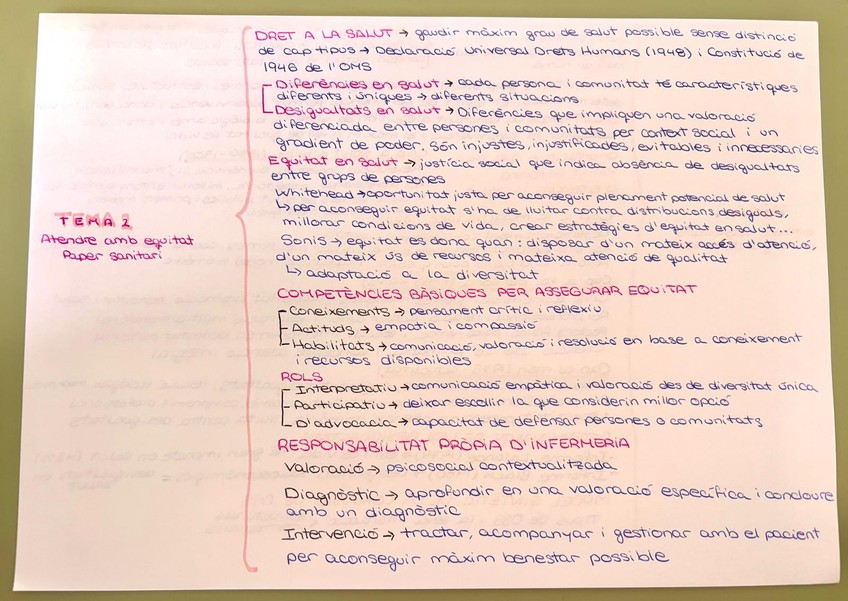 TEMA 2
Atendre amb equitat
Paper sanitari
DRET A LA SALUT → gaudir màxim grau de salut possible sense distinció
de cap tipus → Declaració Universal Drets Humans (1948) i Constitució de
1946 de l'OMS
Diferències en salut → cada persona i comunitat té característiques
diferents i úniques → diferents situacions
Desigualtats en salut → Diferències que impliquen una valoració
diferenciada entre persones i comunitats per context social i un
gradient de poder. Són injustes, injustificades, evitables i innecessàries
Equitat en salut → justícia social que indica absència de desigualtats
entre grups de persones
Whitehead → oportunitat justa per aconseguir plenament potencial de salut
↳ per aconseguir equitat s'ha de lluitar contra distribucions desiguals,
millorar condicions de vida, crear estratègies d'equitat en salut...
Sonis → equitat es dona quan: disposar d'un mateix accés d'atenció,
d'un mateix ús de recursos i mateixa atenció de qualitat
↳ adaptació a la diversitat
COMPETÈNCIES BÀSIQUES PER ASSEGURAR EQUITAT
Coneixements → pensament crític i reflexiu
Actituds → empatia i compassió
Habilitats → comunicació, valoració i resolució en base a coneixement
i recursos disponibles
ROLS
Interpretatiu → comunicació empàtica i valoració des de diversitat única
Participatiu → deixar escollir la que considerin millor opció
D'advocacia → capacitat de defensar persones o comunitats
RESPONSABILITAT PRÒPIA D'INFERMERIA
Valoració → psicosocial contextualitzada
Diagnòstic → aprofundir en una valoració específica i concloure
amb un diagnòstic
Intervenció → tractar, acompanyar i gestionar amb el pacient
per aconseguir màxim benestar possible